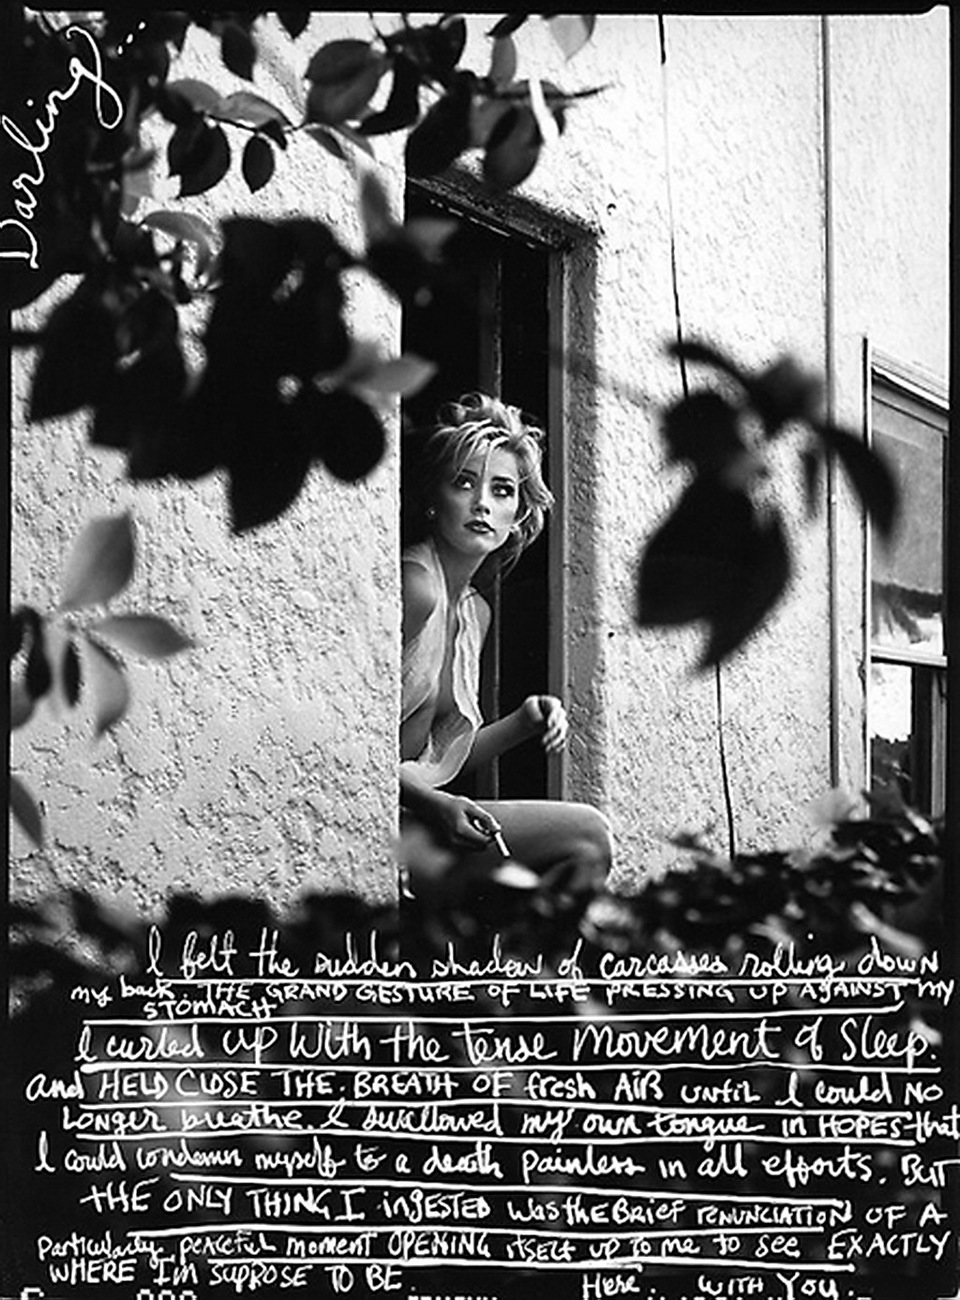 Darling...
I felt the sudden shadow of carcasses rolling down
my back. THE GRAND GESTURE OF LIFE PRESSING UP AGAINST MY
STOMACH
I curled up With the tense Movement of Sleep.
and HELD CLOSE THE BREATH OF fresh AIR until I could NO
Longer breathe. I swallowed my own tongue in HOPES that
I could condemn myself to a death painless in all efforts. But
THE ONLY THING I ingested was the Brief renunciation OF A
particularly peaceful moment OPENING itself up to me to see EXACTLY
WHERE I'm suppose TO BE.
Here. WITH YOU.